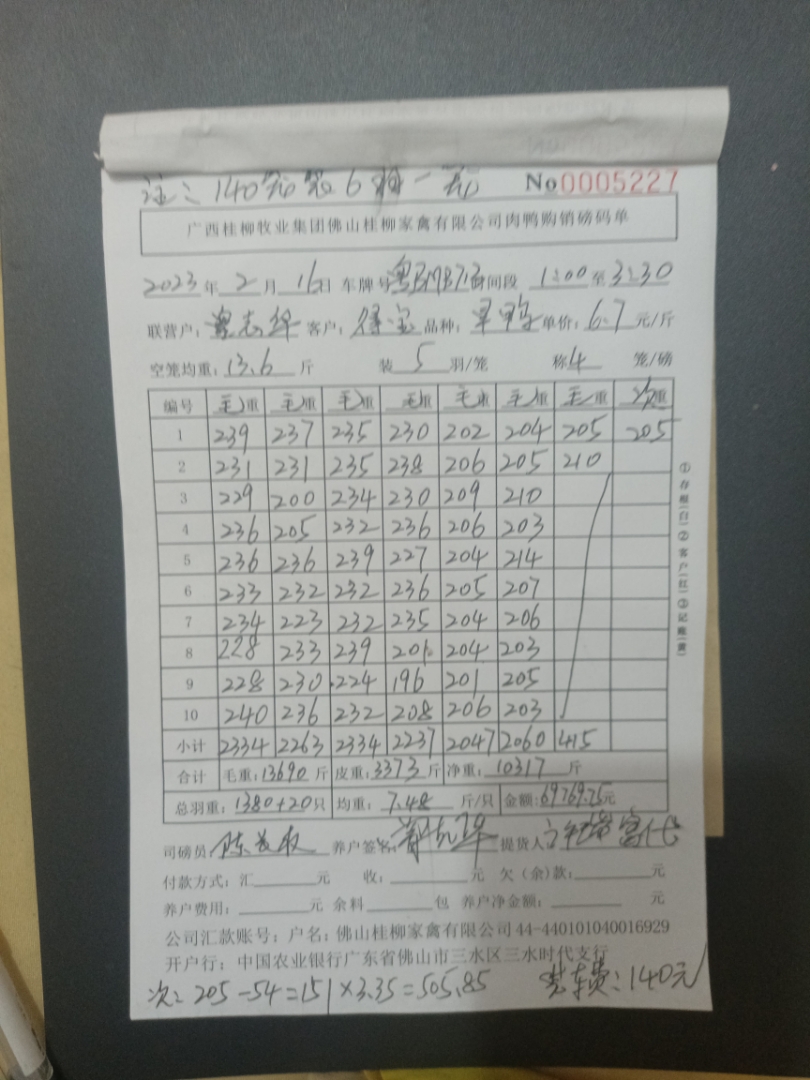 注：140 6 一
No 0005227
广西桂柳牧业集团佛山桂柳家禽有限公司肉鸭购销磅码单
2023年 2月 16日 车牌号 粤 间段 1:00 至 3:30
联营户： 志华 客户： 宝 品种： 鸭 单价：6.7 元/斤
空笼均重：13.6 斤 装 5 羽/笼 称 4 笼/磅
编号 毛重 毛重 毛重 毛重 毛重 毛重 毛重 次重
1 239 237 235 230 202 204 205 205
2 231 231 235 238 206 205 210
3 229 200 234 230 209 210
4 236 205 232 236 206 203
5 236 236 239 227 204 214
6 233 232 232 236 205 207
7 234 223 232 235 204 206
8 228 233 239 201 204 203
9 228 230 224 196 201 205
10 240 236 232 208 206 203
小计 2334 2263 2334 2237 2047 2060 415
合计 毛重：13690 斤 皮重：3373 斤 净重：10317 斤
总羽重：1380+20只 均重：7.48 斤/只 金额：69769.25元
司磅员： 陈 养户签名： 提货人
付款方式：汇 元 收： 元 欠（余）款： 元
养户费用： 元 余料 包 养户净金额： 元
公司汇款账号：户名：佛山桂柳家禽有限公司44-440101040016929
开户行：中国农业银行广东省佛山市三水区三水时代支行
次：205-54=151×3.35=505.85 装车费：140元
①存根（白）②客户（红）③记账（黄）